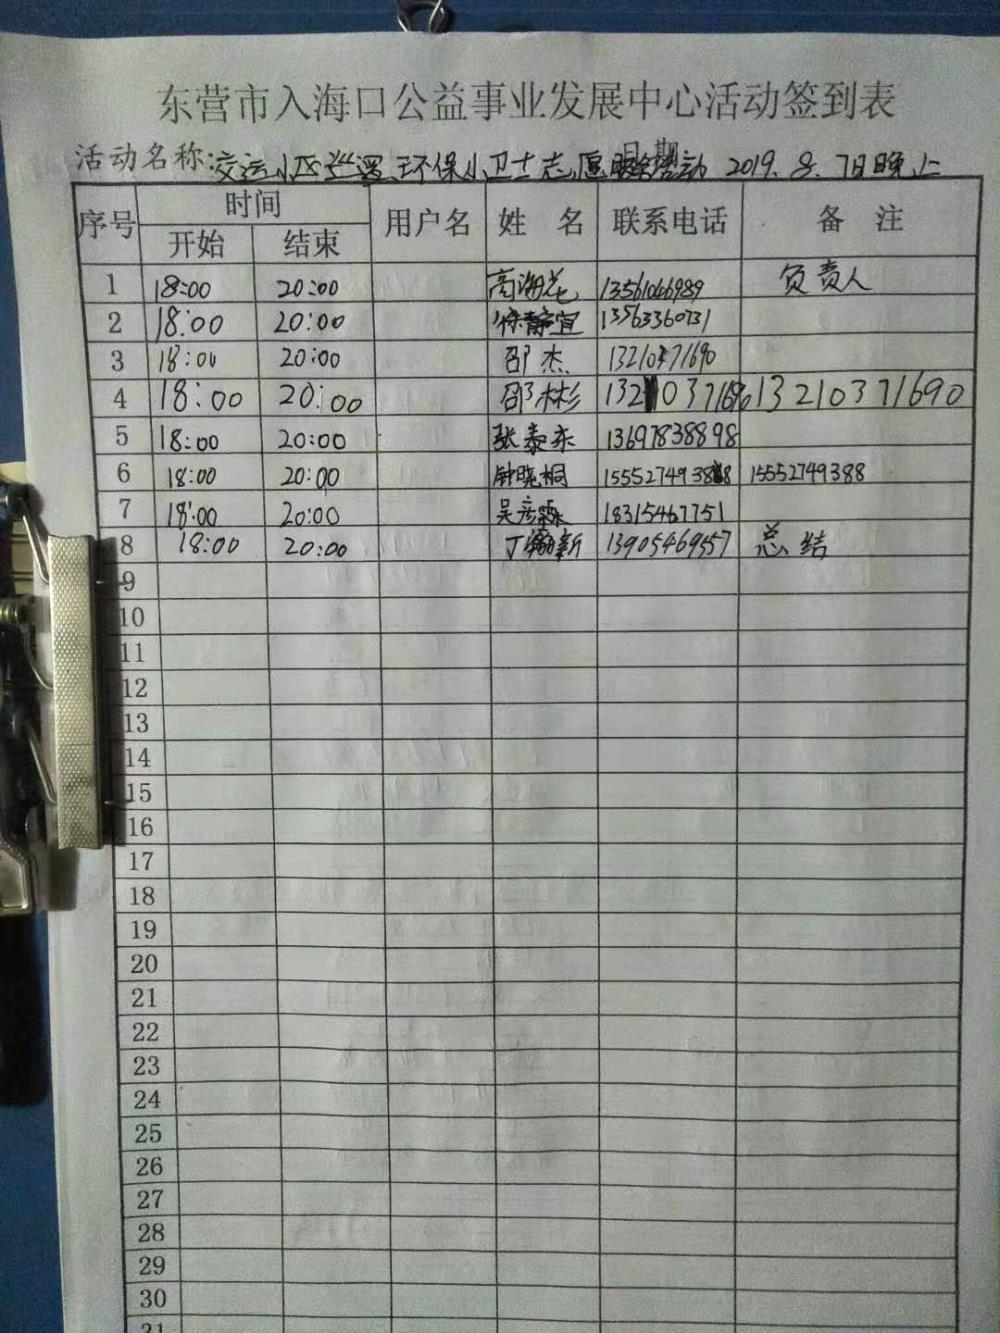 东营市入海口公益事业发展中心活动签到表
活动名称:交运小区巡逻环保小卫士志愿服务活动 日期 2019.8.7日晚上
序号 时间 用户名 姓 名 联系电话 备 注
开始 结束
1 18:00 20:00 高海花 13561046989 负责人
2 18:00 20:00 徐静宜 13563360731
3 18:00 20:00 邵杰 13210371690
4 18:00 20:00 邵彬彬 13210371690 13210371690
5 18:00 20:00 张泰东 13697838898
6 18:00 20:00 钟晓桐 15552749388 15552749388
7 18:00 20:00 吴彦霖 18315467751
8 18:00 20:00 丁瀚新 13905469557 总结
9
10
11
12
13
14
15
16
17
18
19
20
21
22
23
24
25
26
27
28
29
30
31